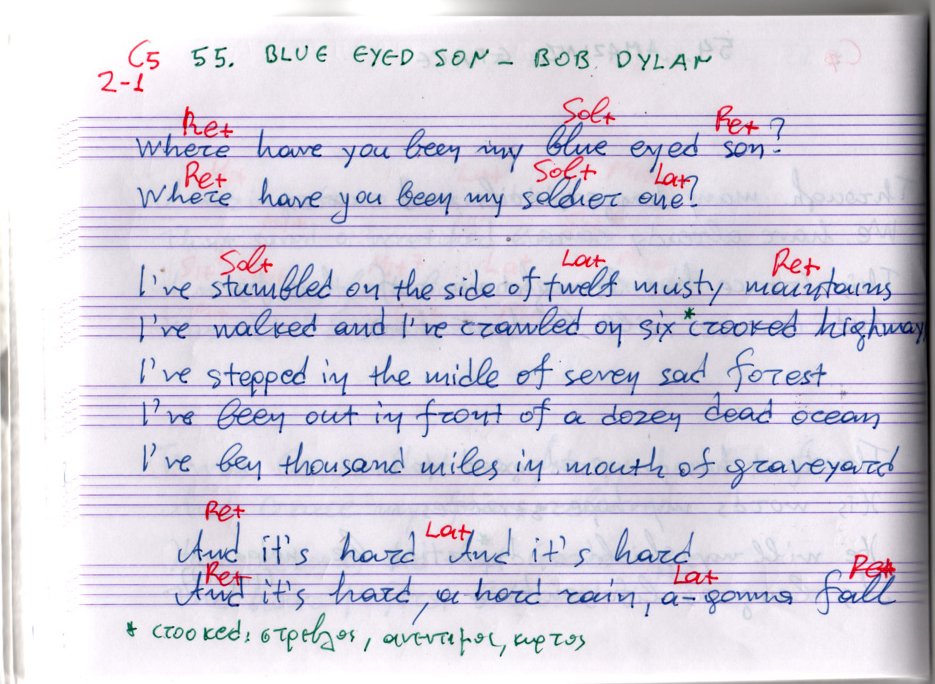 C5 55. BLUE EYED SON - BOB DYLAN
2-1
Re+ Sol+ Re+
Where have you been my blue eyed son?
Re+ Sol+ La+
Where have you been my soldier one?
Sol+ La+ Re+
I've stumbled on the side of twelf musty mountains
I've walked and I've crawled on six *crooked highway
I've stepped in the midle of seven sad forest
I've been out in front of a dozen dead ocean
I've ben thousand miles in mouth of graveyard
Re+ La+
And it's hard And it's hard
Re+ La+ Re+
And it's hard, a hard rain, a-gonna fall
* crooked: στρεβλος, ανεντιμος, κυρτος